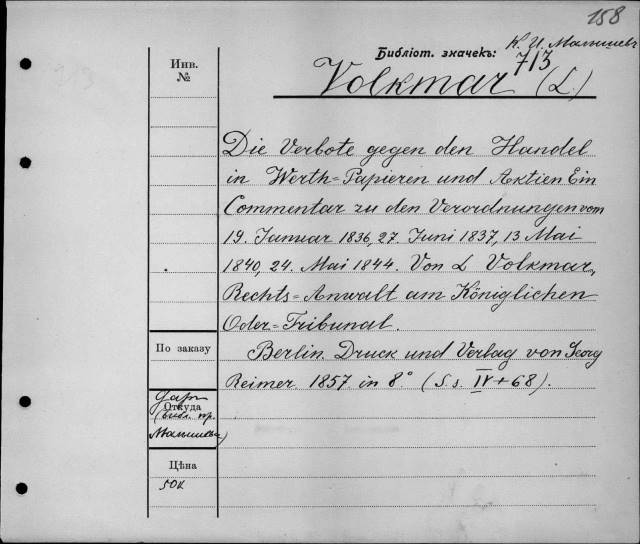 158
К. И. Малышевъ
Библіот. значекъ: 713
Volkmar (L.)
Инв.
№
Die Verbote gegen den Handel
in Werth=Papieren und Aktien Ein
Commentar zu den Verordnungen vom
19. Januar 1836, 27. Juni 1837, 13 Mai
1840, 24. Mai 1844. Von L Volkmar,
Rechts=Anwalt am Königlichen
Oder=Tribunal.
По заказу
Berlin. Druck und Verlag von Georg
Reimer. 1857 in 8° (S.s. IV+68).
Даръ
Откуда
(библ. пр.
Малышева)
Цѣна
50к